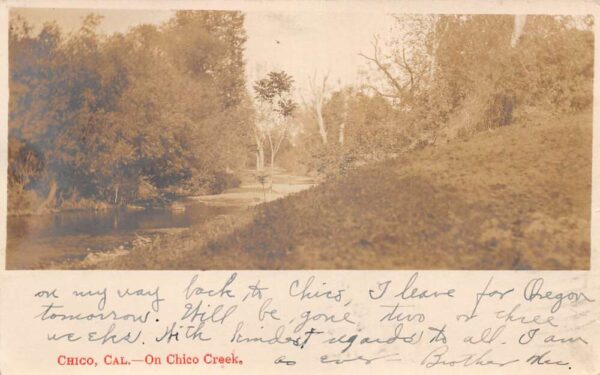 on my way back to Chico, I leave for Oregon
tomorrow. Will be gone two or three
weeks. With kindest regards to all. I am
CHICO, CAL.—On Chico Creek.
as ever Brother Mc.